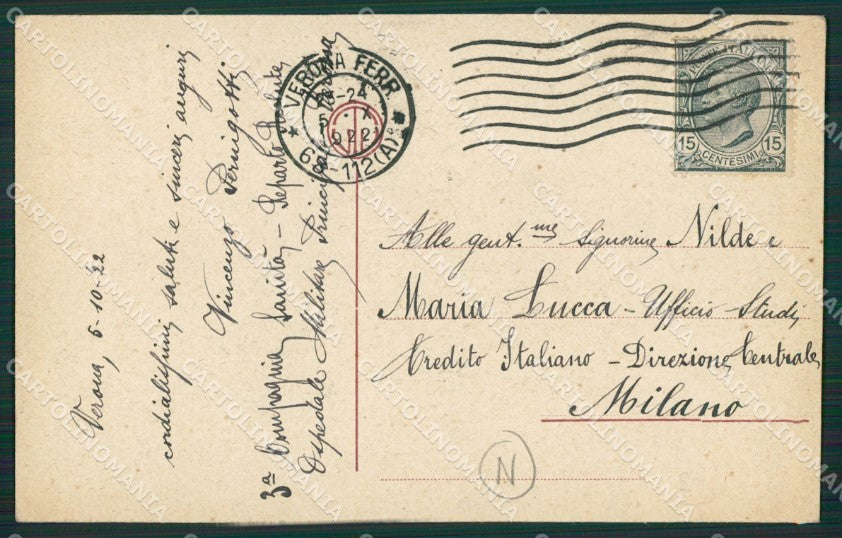 Verona, 5-10-22
cordialissimi saluti e sinceri auguri
Vincenzo Pernigotti
3ª Compagnia Sanità - Reparto
Ospedale Militare Principale
VERONA FERR.
5 . X
1922
68-112(A)
POSTE ITALIANE
15 CENTESIMI 15
Alle gent.me Signorine Nilde e
Maria Lucca - Ufficio Studi,
Credito Italiano - Direzione Centrale
Milano
N
CARTOLINOMANIA